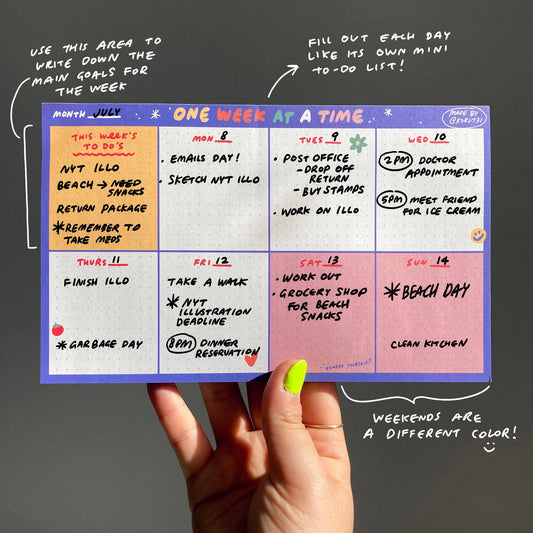 USE THIS AREA TO
WRITE DOWN THE
MAIN GOALS FOR
THE WEEK
FILL OUT EACH DAY
LIKE ITS OWN MINI
TO-DO LIST!
MONTH JULY
ONE WEEK AT A TIME
MADE BY
@KURUT31
THIS WEEK'S
TO DO'S
NYT ILLO
BEACH → NEED
SNACKS
RETURN PACKAGE
*REMEMBER TO
TAKE MEDS
MON 8
• EMAILS DAY!
• SKETCH NYT ILLO
TUES 9
• POST OFFICE
- DROP OFF
RETURN
- BUY STAMPS
• WORK ON ILLO
WED 10
2PM DOCTOR
APPOINTMENT
5PM MEET FRIEND
FOR ICE CREAM
THURS 11
FINISH ILLO
* GARBAGE DAY
FRI 12
TAKE A WALK
* NYT
ILLUSTRATION
DEADLINE
8PM DINNER
RESERVATION
SAT 13
• WORK OUT
• GROCERY SHOP
FOR BEACH
SNACKS
REWARD YOURSELF!
SUN 14
*BEACH DAY
CLEAN KITCHEN
WEEKENDS ARE
A DIFFERENT COLOR!